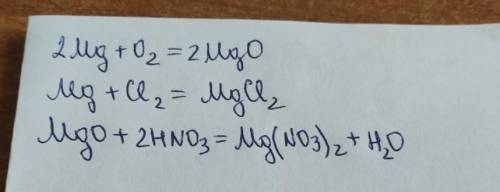 2Mg + O₂ = 2MgO
Mg + Cl₂ = MgCl₂
MgO + 2HNO₃ = Mg(NO₃)₂ + H₂O